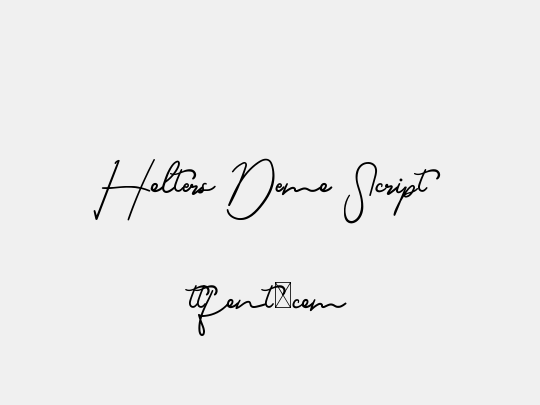 Holters Demo Script
ttfont☒com